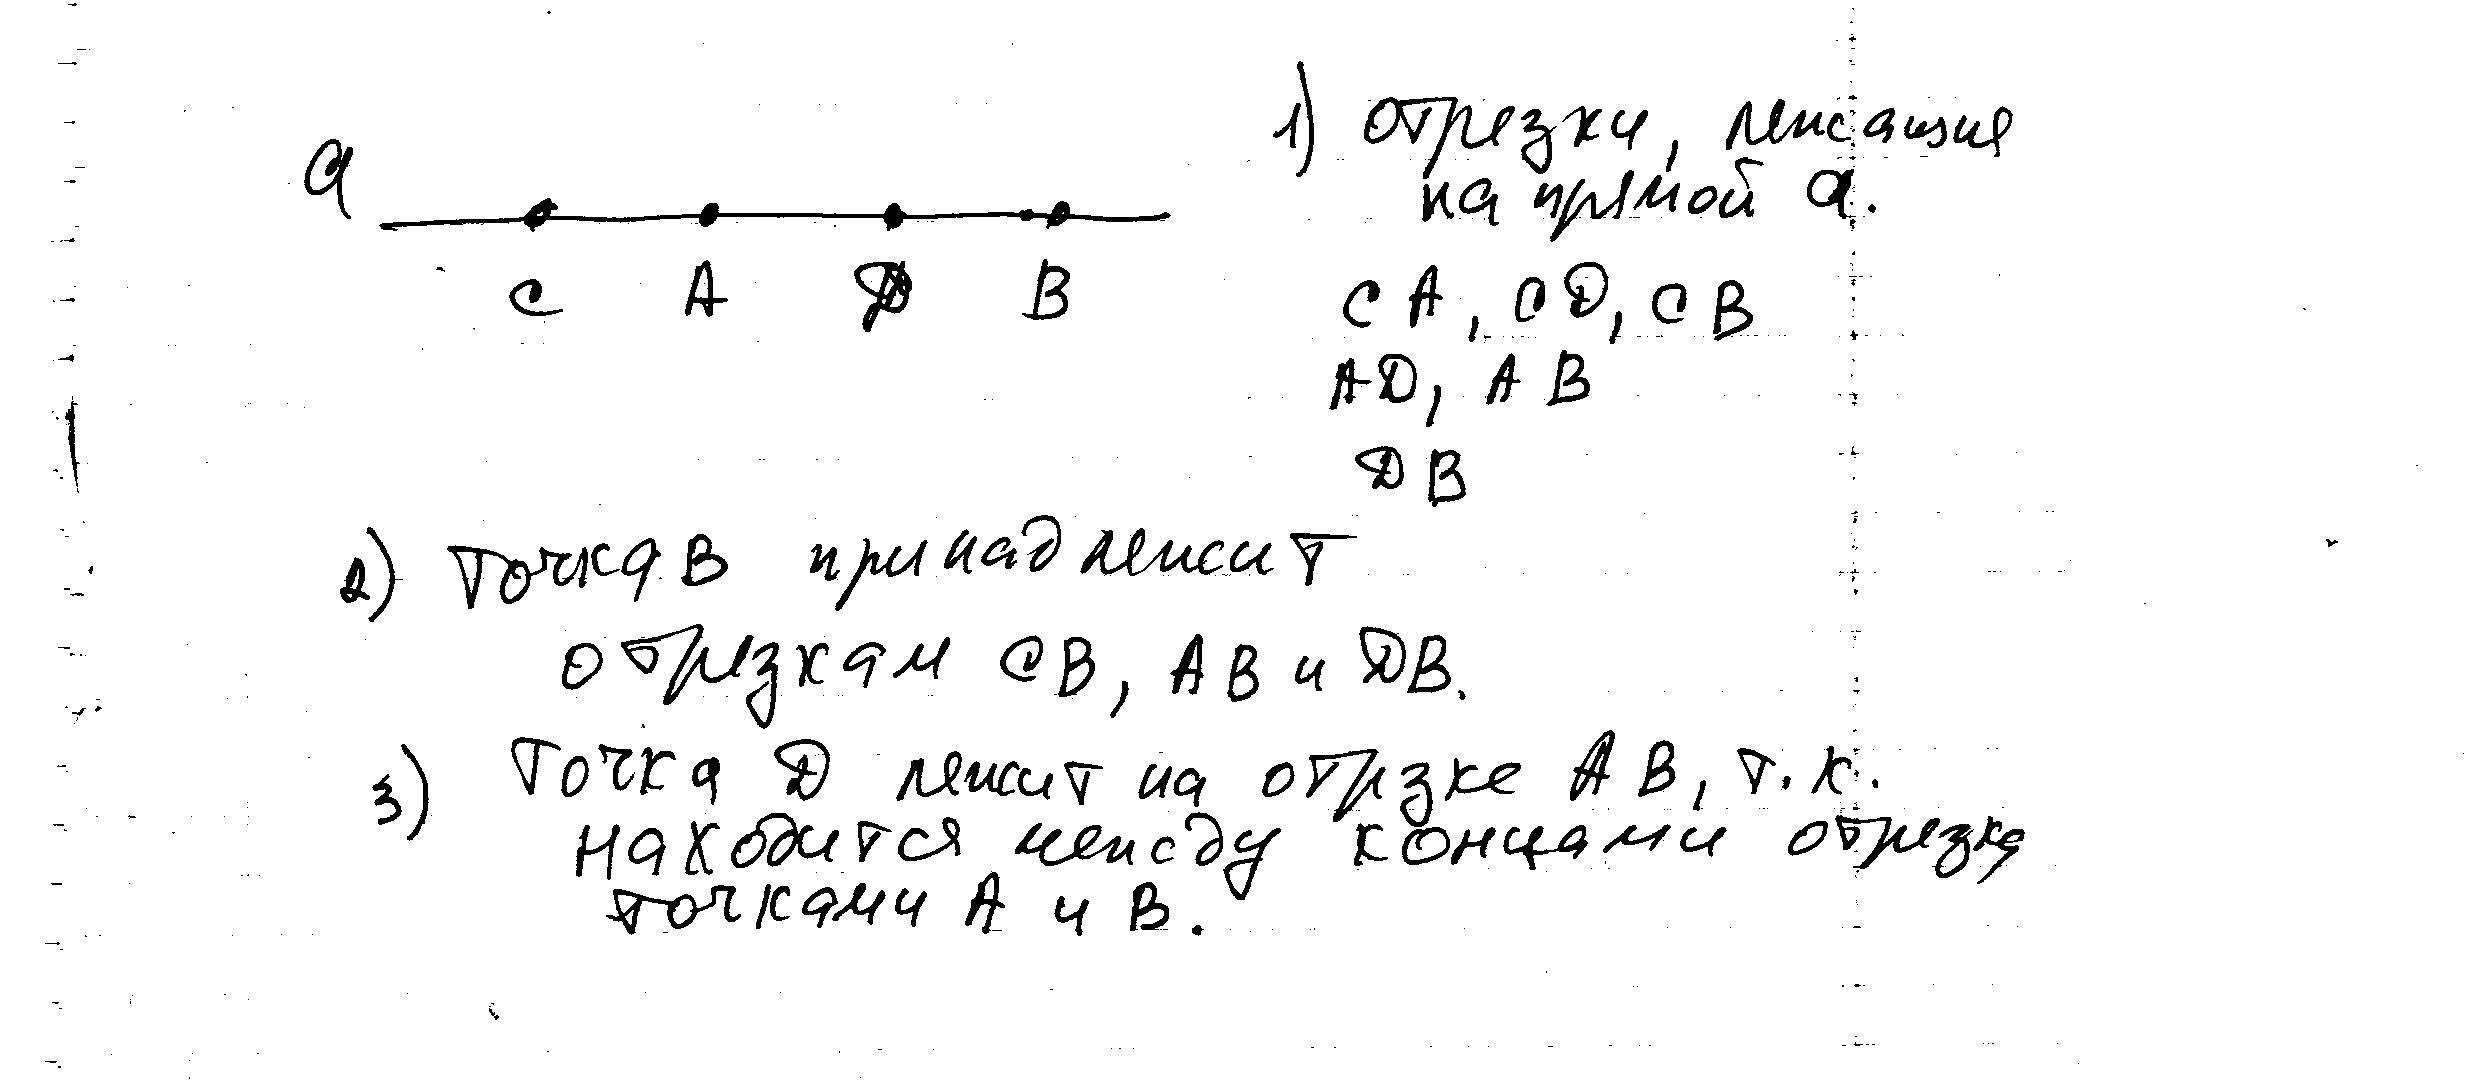 a
C A D B
1) отрезки, лежащие
на прямой a.
CA, CD, CB
AD, AB
DB
2) Точка B принадлежит
отрезкам CB, AB и DB.
3) Точка D лежит на отрзке AB, т.к.
находится между концами отрезка
точками A и B.